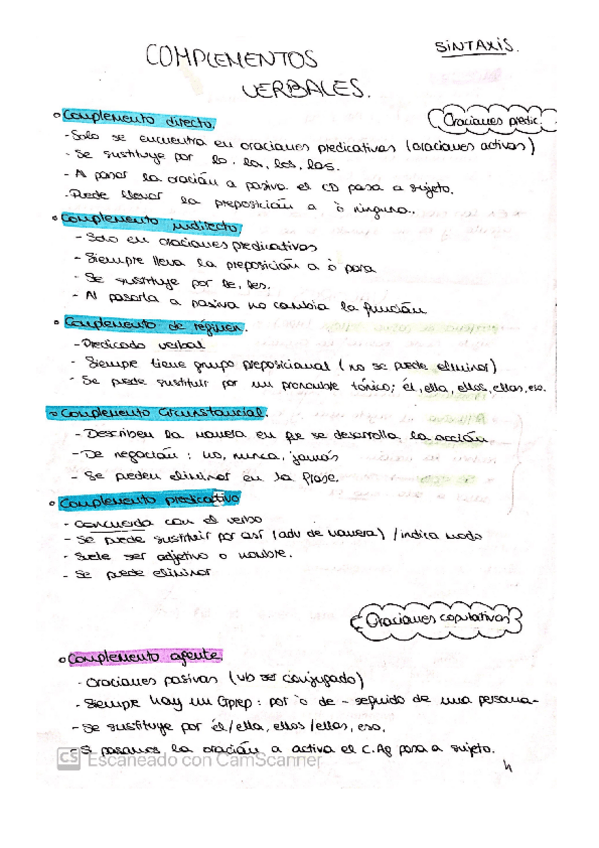 SINTAXIS.
COMPLEMENTOS
VERBALES.
Oraciones predic.
Complemento directo.
- Solo se encuentra en oraciones predicativas (oraciones activas)
- Se sustituye por lo, la, los, las.
- Al pasar la oración a pasiva el CD pasa a sujeto.
- Puede llevar la preposición a ò ninguna..
Complemento indirecto
- Solo en oraciones predicativas
- Siempre lleva la preposición a ò para
- Se sustituye por le, les.
- Al pasarla a pasiva no cambia la función
Complemento de régimen.
- Predicado verbal
- Siempre tiene grupo preposicional (no se puede eliminar)
- Se puede sustituir por un pronombre tónico; él, ella, ellos, ellas, eso.
Complemento Circunstancial.
- Describen la manera en que se desarrolla la acción
- De negación: no, nunca, jamás
- Se pueden eliminar en la frase.
Complemento predicativo
- Concuerda con el verbo
- Se puede sustituir por así (adv de manera) / indica modo
- Suele ser adjetivo o nombre.
- Se puede eliminar
Oraciones copulativas
Complemento agente
- Oraciones pasivas (vb ser conjugado)
- Siempre hay un Gprep: por ò de - seguido de una persona-
- Se sustituye por él/ella, ellos/ellas, eso.
- Si pasamos la oración a activa el C.Ag pasa a sujeto.
CS Escaneado con CamScanner